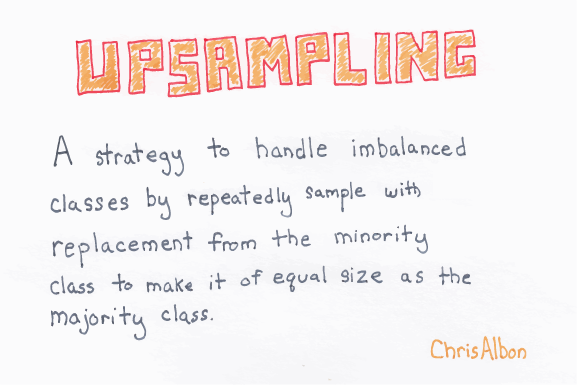 UPSAMPLING
A strategy to handle imbalanced
classes by repeatedly sample with
replacement from the minority
class to make it of equal size as the
majority class.
ChrisAlbon